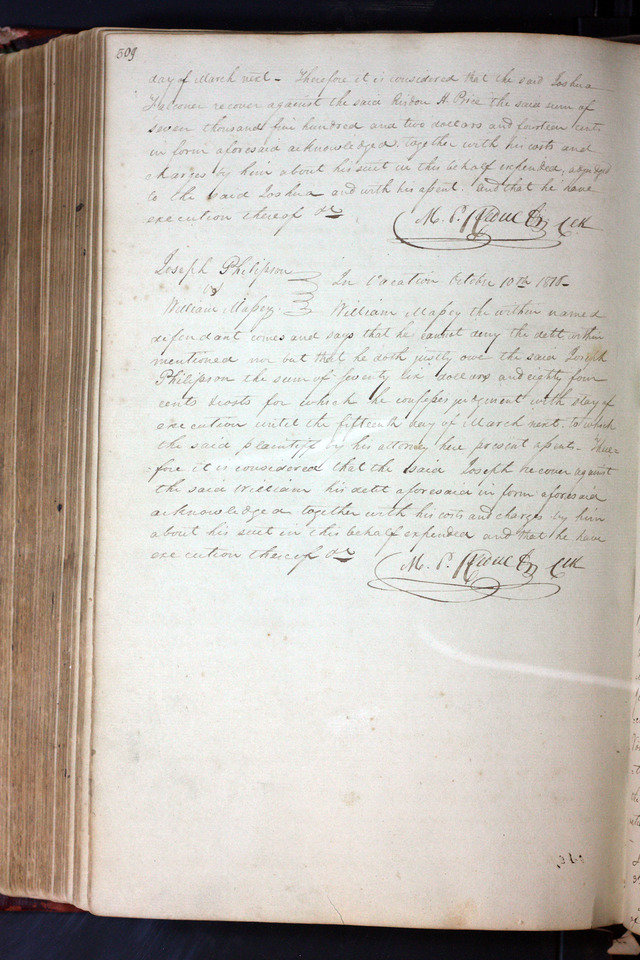 509
day of March next - Therefore it is considered that the said Joshua
Falconer recover against the said Risdon H. Price the said sum of
seven thousand five hundred and two dollars and fourteen cents
in form aforesaid acknowledged, together with his costs and
charges by him about his suit in this behalf expended, adjudged
to the said Joshua and with his assent. And that he have
execution thereof &c
M. P. Leduc Clk
Joseph Philipson
vs
William Massey
In Vacation October 10th 1818-
William Massey the within named
defendant comes and says that he cannot deny the debt within
mentioned nor but that he doth justly owe the said Joseph
Philipson the sum of seventy six dollars and eighty four
cents for which he confesses judgment with stay of
execution until the fifteenth day of March next. to which
the said plaintiff by his attorney here present assents. There=
fore it is considered that the said Joseph recover against
the said William his debt aforesaid in form aforesaid
acknowledged together with his costs and charges by him
about his suit in this behalf expended and that he have
execution thereof &c
M. P. Leduc Clk